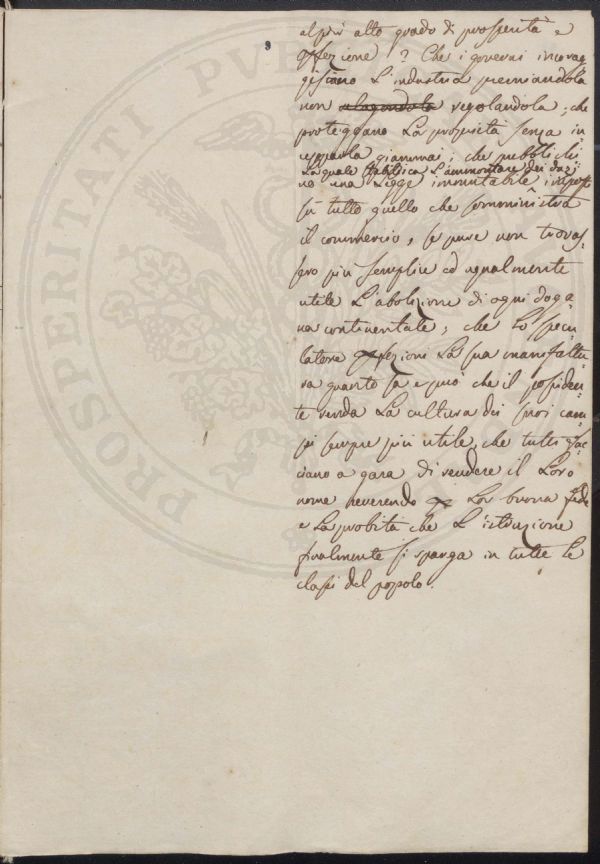 al più alto grado di prosperità e
pfezione? Che i governi incorag-
giscano L'industria premiandola
non regolandola, che
proteggano La proprietà senza in
cepparla giammai; che pubblichi
La quale stabilisca L'ammontare dei dazj
no una Legge immutabile
su tutto quello che somministra
il commercio, se pure non trovas-
sero più semplice ed ugualmente
utile L'abolizione di ogni doga-
na continentale; che Lo specu-
latore pfezioni La sua manifattu-
ra quanto sa e può che il possiden-
te renda La cultura dei suoi cam-
pi sempre più utile, che tutti fac-
ciano a gara di rendere il Loro
nome reverendo p Lor buona fede
e La probità che L'istruzione
finalmente si sparga in tutte Le
classi del popolo.
PROSPERITATI PUB